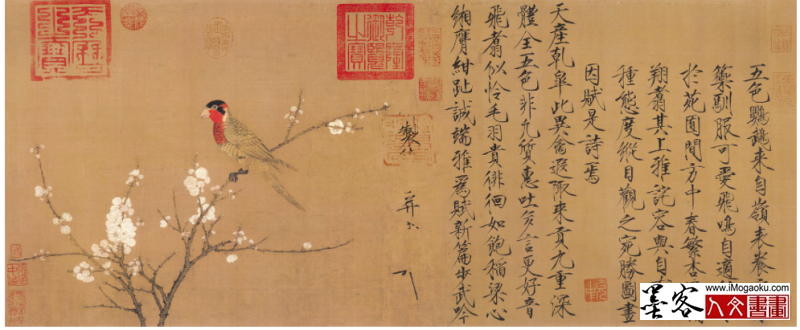 五色鸚鵡來自嶺表養
籞馴服可愛飛鳴自適
於苑囿間方中春繁杏
翔翥其上雅詫容與自
種態度縱目觀之宛勝圖畫
因賦是詩焉
天產乾皋此異禽遐陬來貢九重深
體全五色非凡質惠吐多言更好音
飛翥似憐毛羽貴徘徊如飽稻粱心
緗膺紺趾誠端雅為賦新篇步武吟
製
www.iMogaoku.com
墨客人文書畫